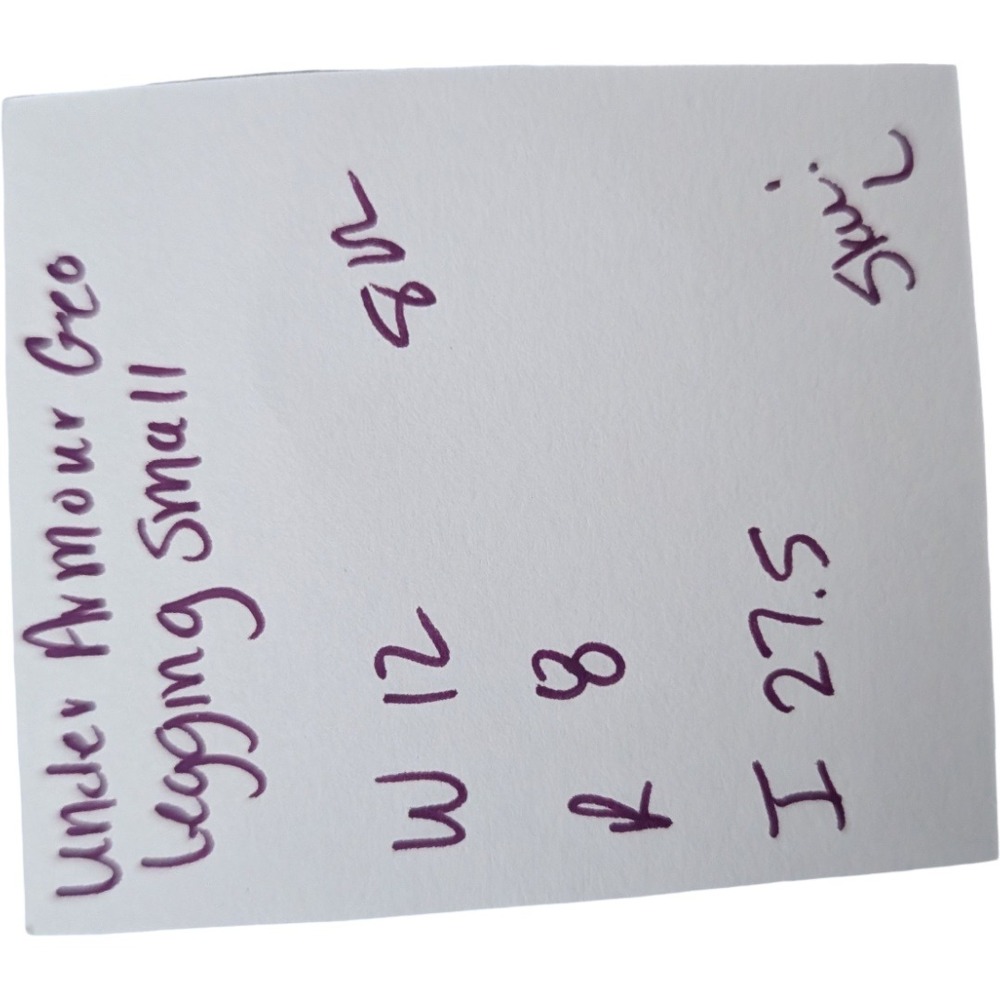 Under Armour Geo
Legging Small
W 12
R 8
I 27.5